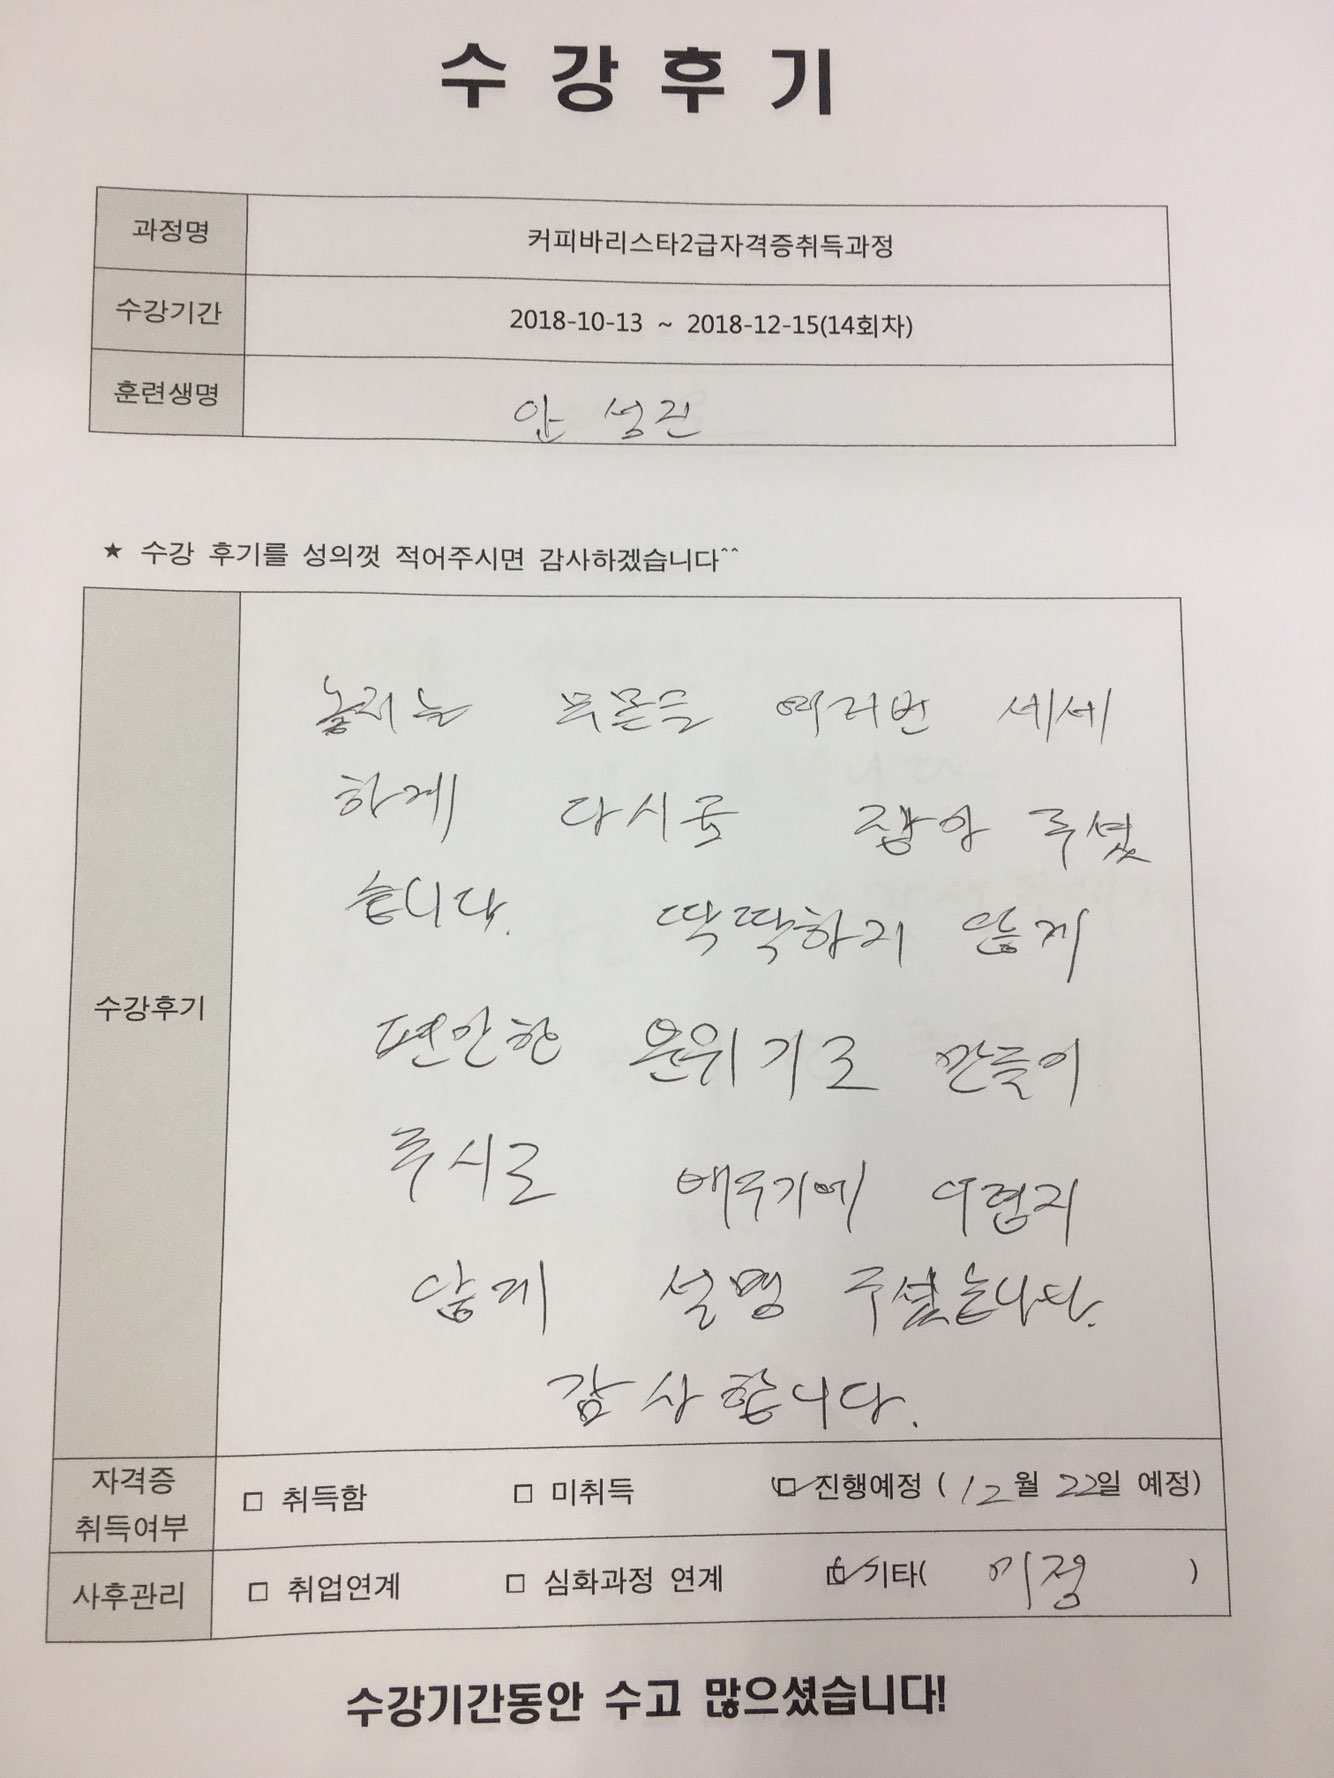 수강후기
과정명 커피바리스타2급자격증취득과정
수강기간 2018-10-13 ~ 2018-12-15(14회차)
훈련생명 안 성진
★ 수강 후기를 성의껏 적어주시면 감사하겠습니다^^
놓치는 부분을 여러번 세세
하게 다시금 잡아 주셨
습니다. 딱딱하지 않게
수강후기
편안한 분위기로 만들어
주시고 배우기에 어렵지
않게 설명 주셨습니다.
감사합니다.
자격증 취득여부 □ 취득함 □ 미취득 ☑ 진행예정 ( 12월 22일 예정)
사후관리 □ 취업연계 □ 심화과정 연계 ☑ 기타( 미정 )
수강기간동안 수고 많으셨습니다!